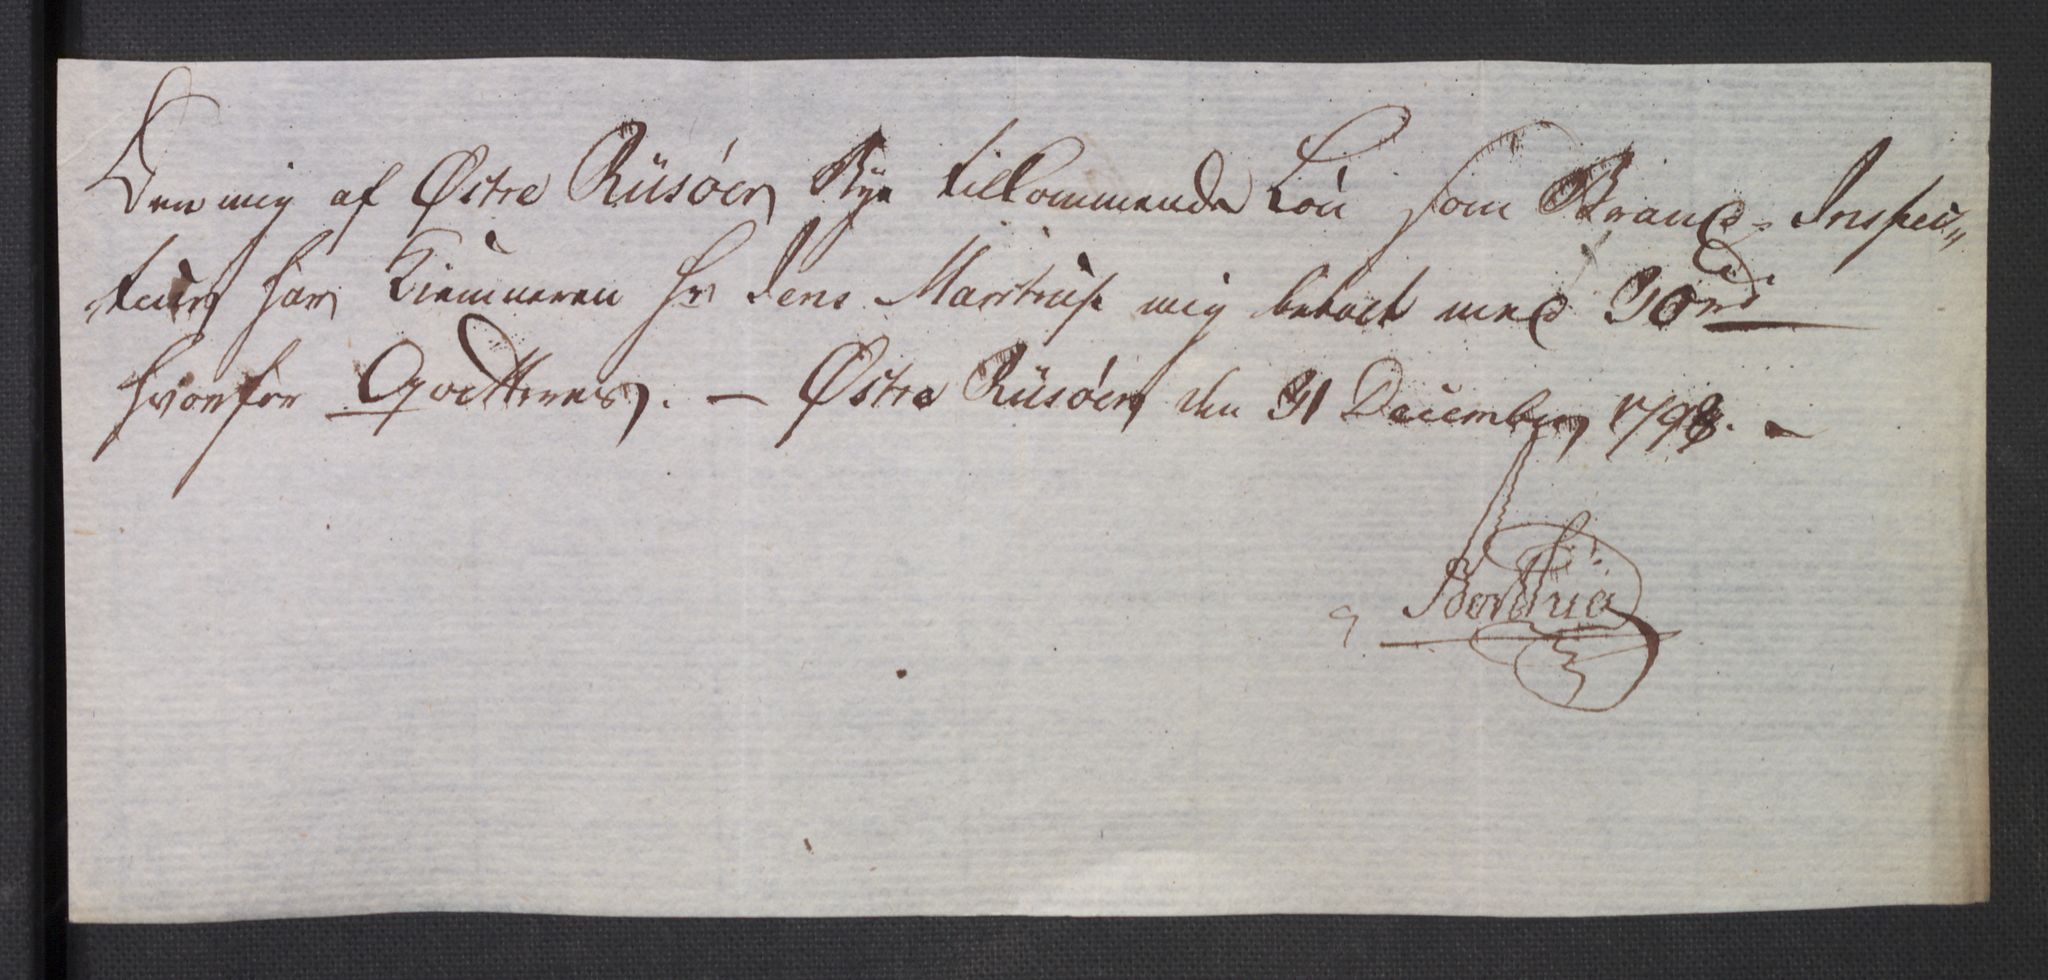 Den mig af Østre Riisøer Bye tilkommende Løn som Brand-Inspec„
„teur har Kiemneren Hr Jens Marstrup mig betalt med 30 rd
hvorfor Qvitteres. — Østre Riisøer den 31 December 1798. —